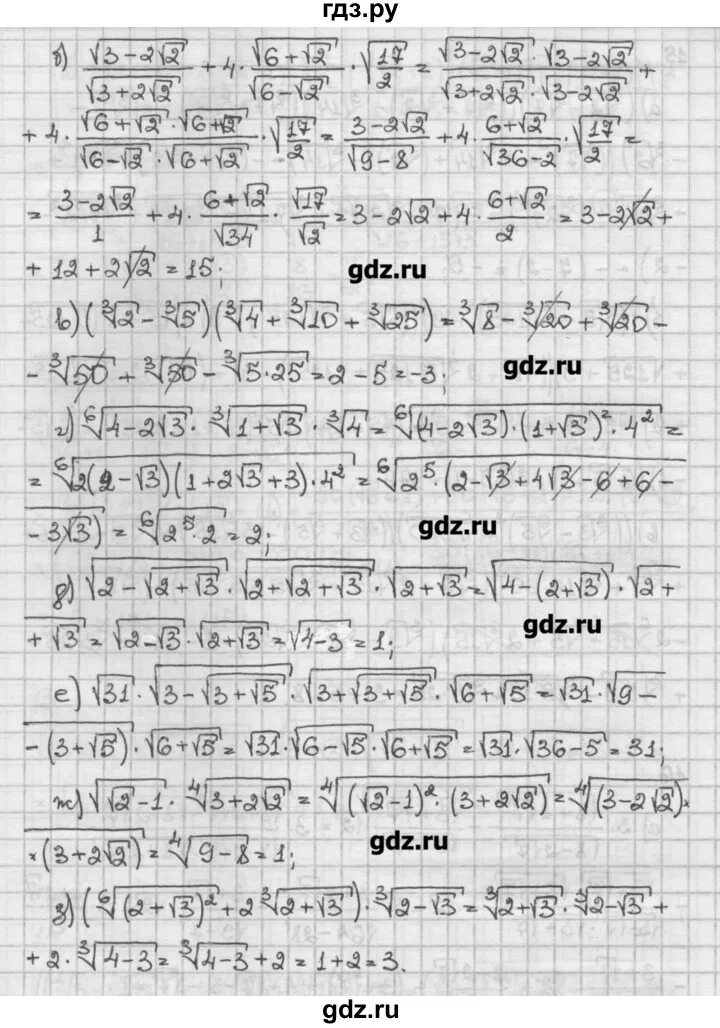 гдз.ру
б) √(3-2√2)/√(3+2√2) + 4·√(6+√2)/√(6-√2)·√(17/2) = √(3-2√2)·√(3-2√2)/√(3+2√2)·√(3-2√2) +
+ 4·√(6+√2)·√(6+√2)/√(6-√2)·√(6+√2)·√(17/2) = (3-2√2)/√(9-8) + 4·(6+√2)/√(36-2)·√(17/2) =
= (3-2√2)/1 + 4·(6+√2)/√34·√17/√2 = 3-2√2+4·(6+√2)/2 = 3-2√2+
+ 12+2√2 = 15; gdz.ru
в) (∛2 - ∛5)(∛4 + ∛10 + ∛25) = ∛8 - ∛20 + ∛20 -
- ∛50 + ∛50 - ∛(5·25) = 2 - 5 = -3; gdz.ru
г) ⁶√(4-2√3)·∛(1+√3)·∛4 = ⁶√((4-2√3)·(1+√3)²·4²) =
= ⁶√(2(2-√3)(1+2√3+3)·4²) = ⁶√(2⁵·(2-√3+4√3-6+6-
-3√3)) = ⁶√(2⁵·2) = 2; gdz.ru
д) √(2-√(2+√3))·√(2+√(2+√3))·√(2+√3) = √(4-(2+√3))·√(2+
+√3) = √(2-√3)·√(2+√3) = √(4-3) = 1; gdz.ru
е) √31·√(3-√(3+√5))·√(3+√(3+√5))·√(6+√5) = √31·√(9-
-(3+√5))·√(6+√5) = √31·√(6-√5)·√(6+√5) = √31·√(36-5) = 31;
ж) √(√2-1)·⁴√(3+2√2) = ⁴√((√2-1)²·(3+2√2)) = ⁴√((3-2√2)×
×(3+2√2)) = ⁴√(9-8) = 1; gdz.ru
з) (⁶√((2+√3)²) + 2∛(2+√3))·∛(2-√3) = ∛(2+√3)·∛(2-√3) +
+ 2·∛(4-3) = ∛(4-3) + 2 = 1+2 = 3.
gdz.ru